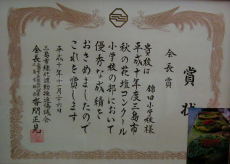 賞状
会長賞
錦田小学校様
貴校は
平成十年度三島市
秋の花壇コンクール
小学校の部において
優秀な成績を
おさめましたので
これを賞します
平成十年十一月十六日
三島市緑化運動推進協議会
会長